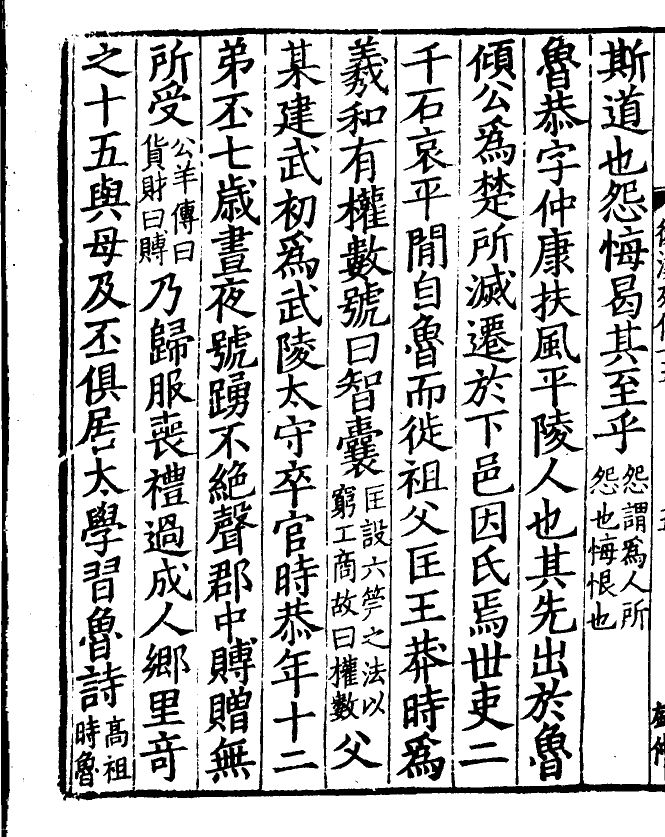 斯道也怨悔曷其至乎怨謂爲人所怨也悔恨也
魯恭字仲康扶風平陵人也其先出於魯
傾公爲楚所滅遷於下邑因氏焉世吏二
千石哀平閒自魯而徙祖父匡王莽時爲
羲和有權數號曰智囊匡設六笇之法以窮工商故曰權數父
某建武初爲武陵太守卒官時恭年十二
弟丕七歲晝夜號踴不絕聲郡中賻贈無
所受公羊傳曰貨財曰賻乃歸服喪禮過成人鄉里竒
之十五與母及丕俱居太學習魯詩髙祖時魯